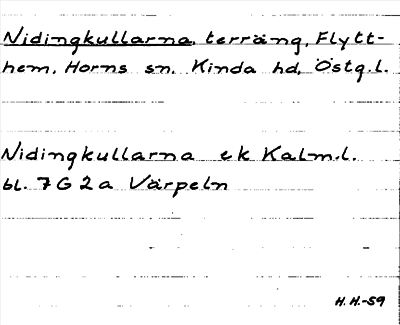 Nidingkullarna, terräng, Flytt-
hem, Horns sn, Kinda hd, Östg.l.
Nidingkullarna ek Kalm.l.
bl. 7G2a Värpeln
H.H.-59